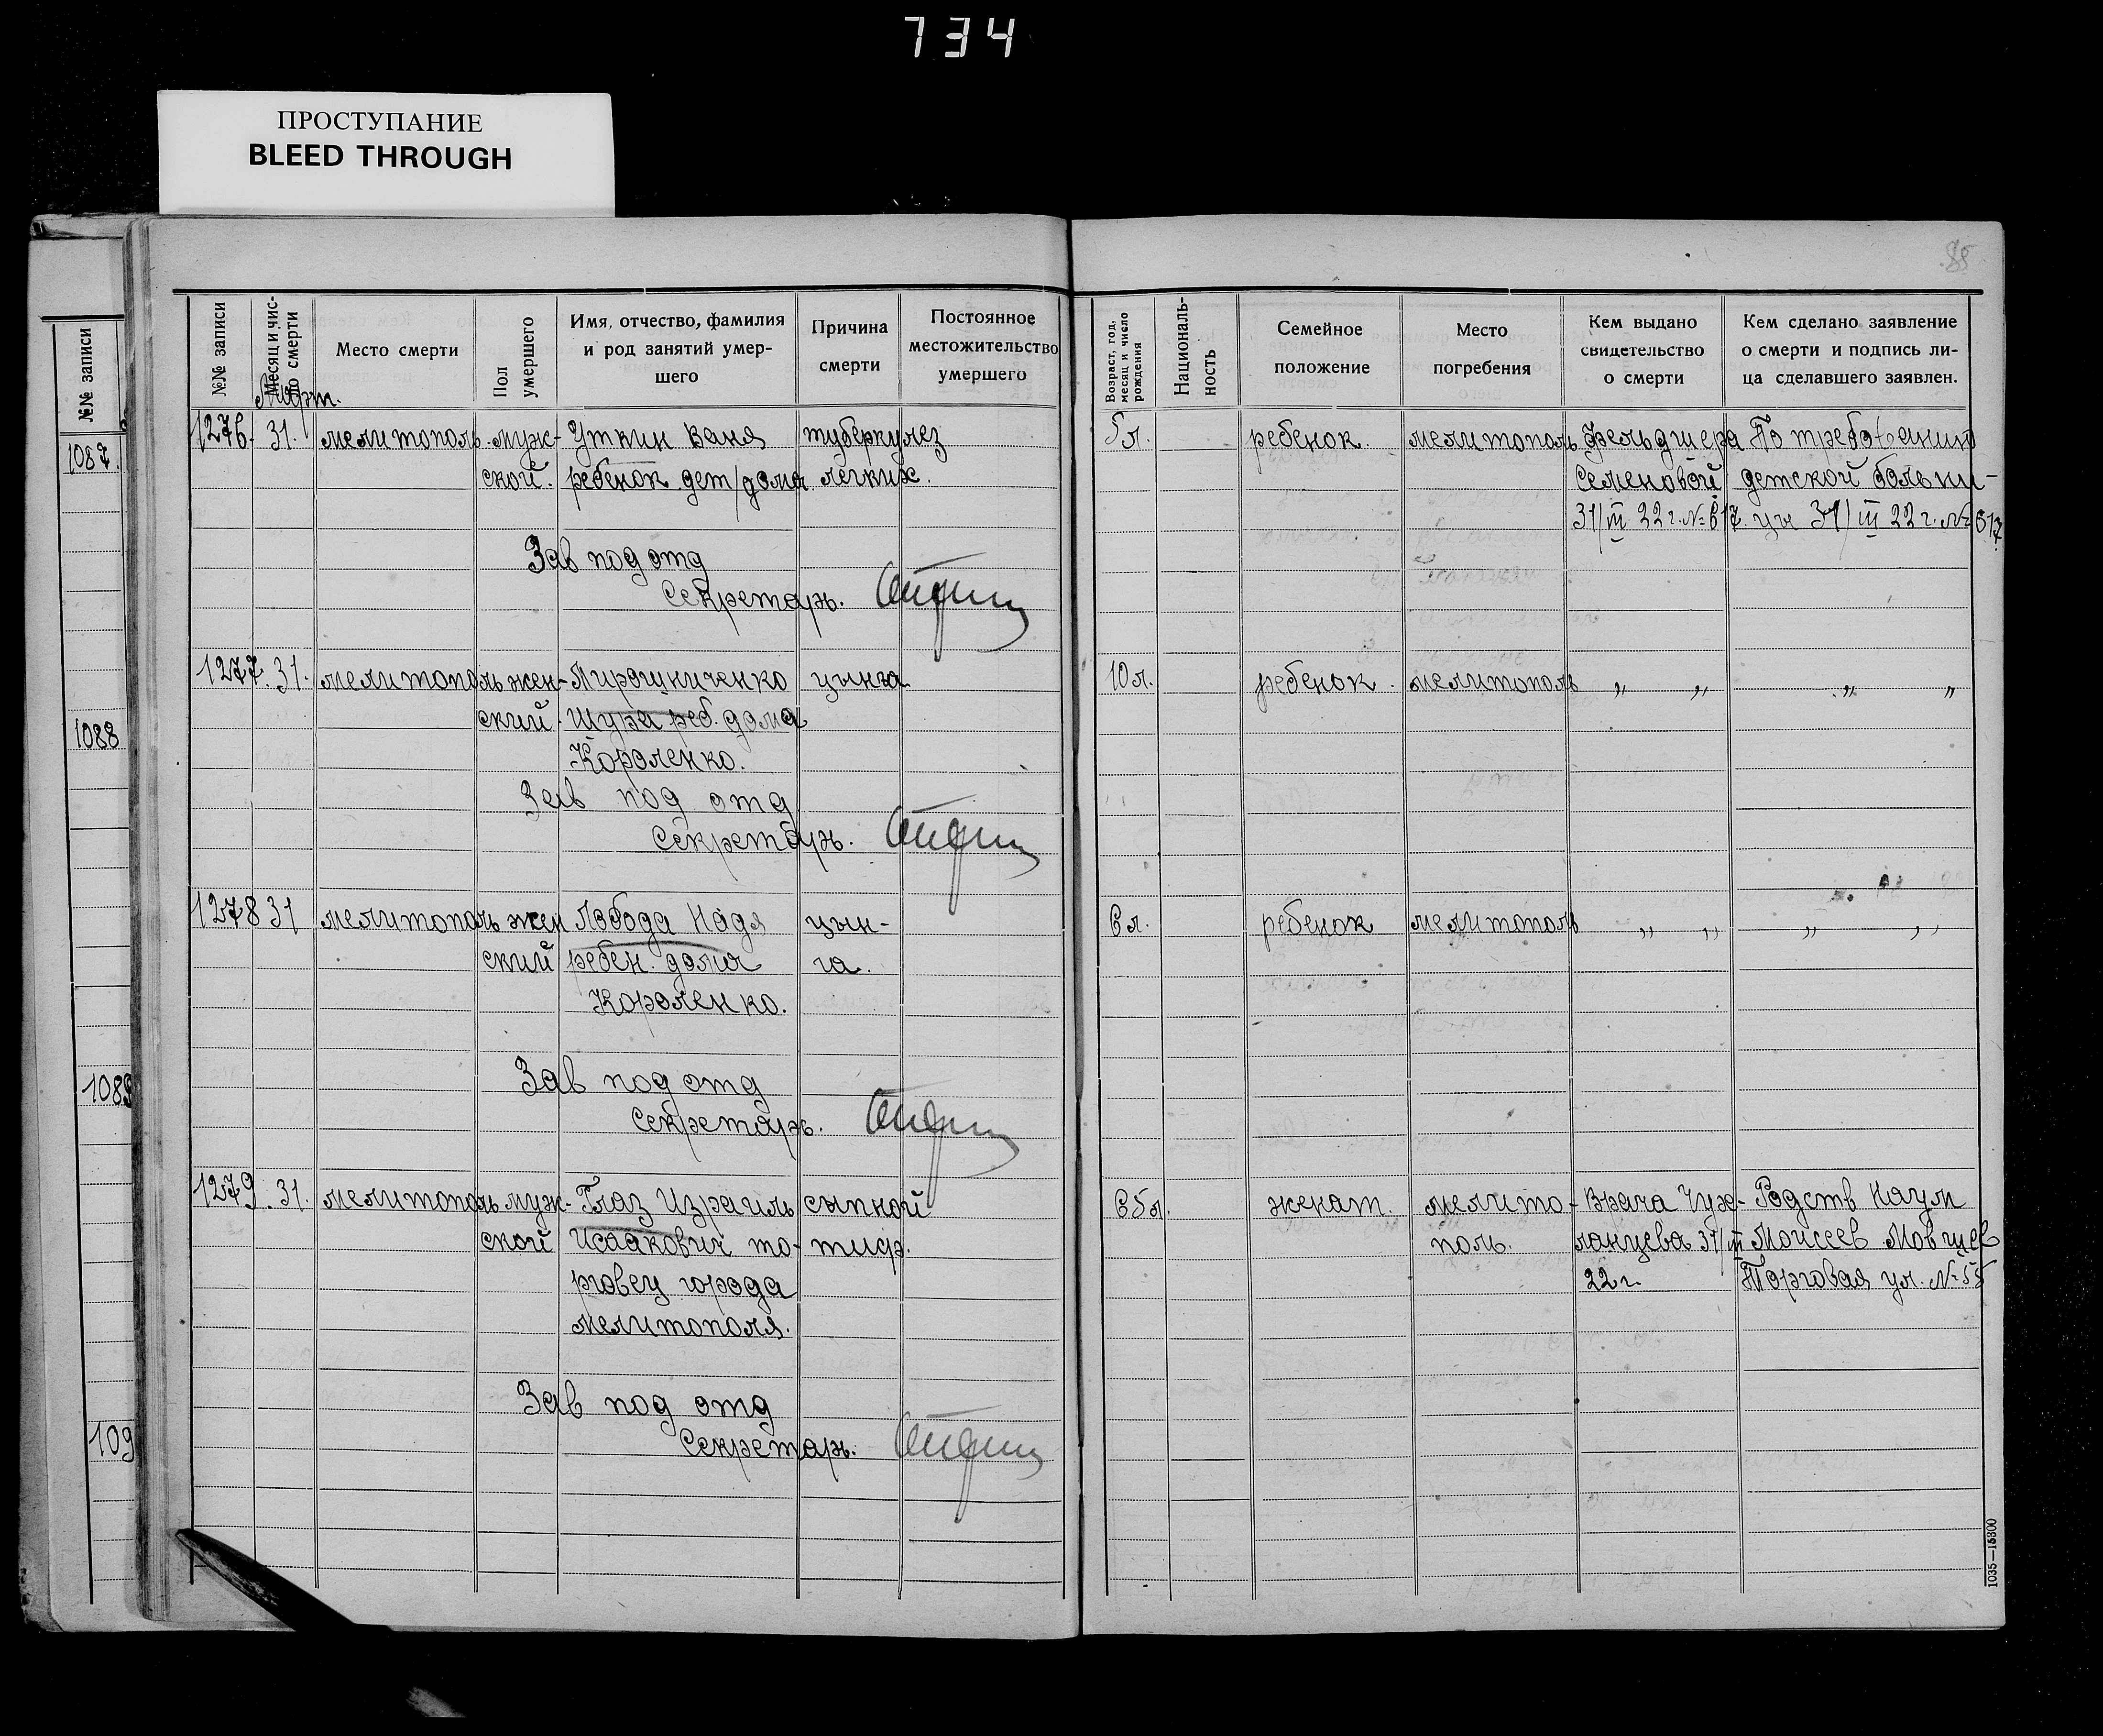 734
ПРОСТУПАНИЕ
BLEED THROUGH
88
№№ записи
1087.
1088
1089
109
№№ записи
Месяц и число смерти
Место смерти
Пол умершего
Имя, отчество, фамилия и род занятий умершего
Причина смерти
Постоянное местожительство умершего
Возраст, год, месяц и число рождения
Националь-ность
Семейное положение
Место погребения
Кем выдано свидетельство о смерти
Кем сделано заявление о смерти и подпись ли-ца сделавшего заявлен.
Март.
1276. 31. мелитополь муж- Уткин Ваня туберкулез 5 л. ребенок. мелитополь Фельдшера По требованию
ской. ребенок дет/дома легких. Семеновой детской больни-
31/III 22 г. № 617. цы 31/III 22 г. № 617.
Зав под отд
Секретарь.
1277. 31. мелитополь жен- Мирошниченко цынга 10 л. ребенок. мелитополь „ „ „ „
ский. Шура реб. дома
Короленко.
Зав под отд
Секретарь.
1278 31 мелитополь жен Лобода Надя цын- 6 л. ребенок мелитополь „ „ „ „
ский ребен. дома га.
Короленко.
Зав под отд
Секретарь.
1279. 31. мелитополь муж- Глаз Израиль сыпной 65 л. женат. мелито- Врача Чуж- Родств Наум
ской Исаакович то- тиф. поль. ланцева 31/III Моисеев Мовшев
рговец города 22 г. Торговая ул. № 55
мелитополя.
Зав под отд
Секретарь.
1035—15300